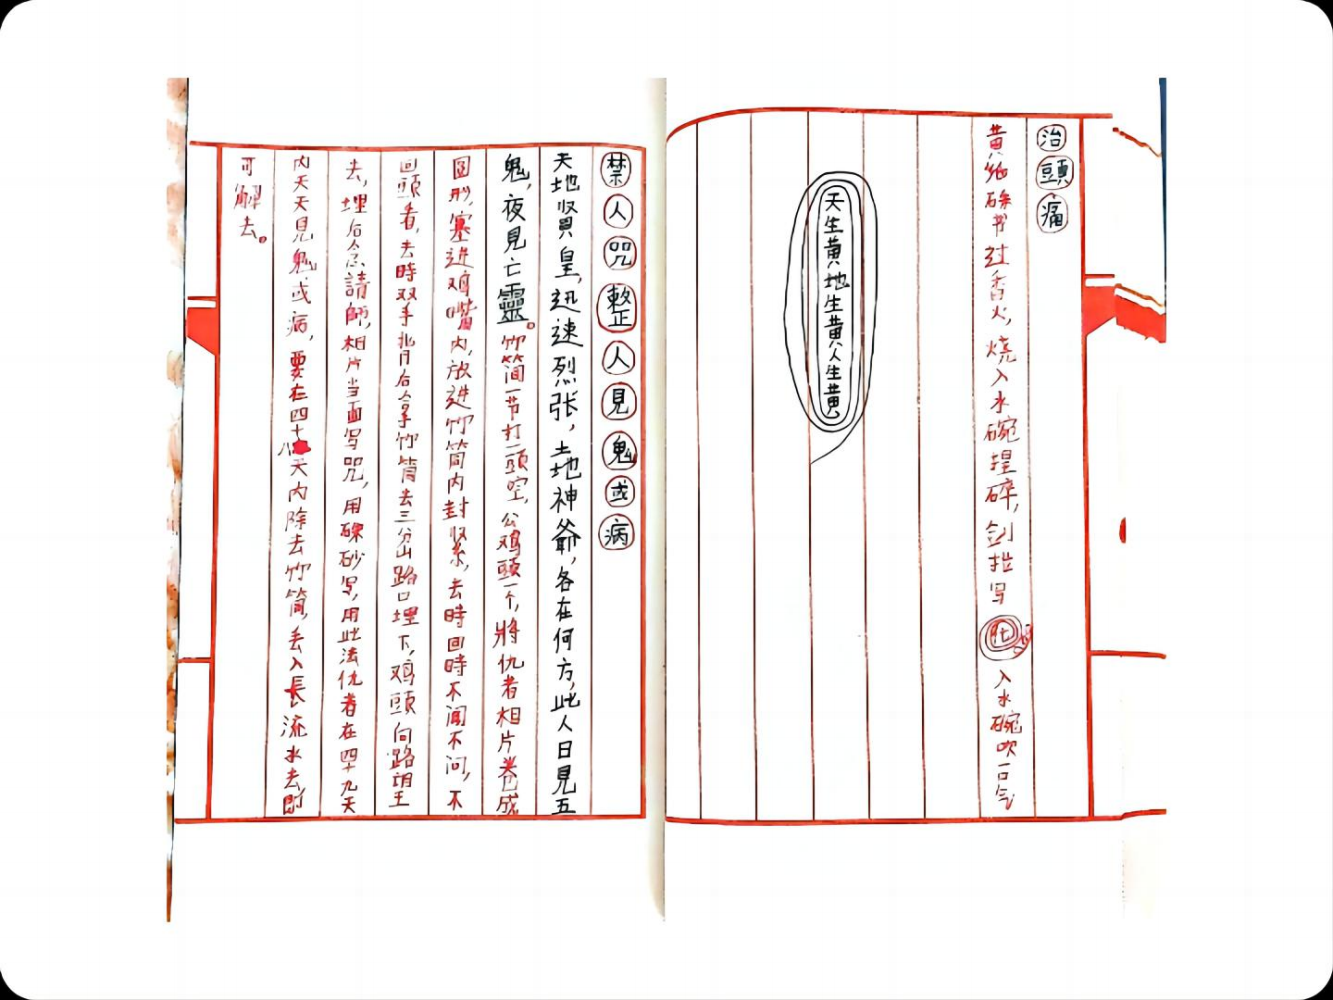 治頭痛
黄纸硃书过香火，烧入水碗捏碎，剑指写
化
入水碗吹一口气
天生黄地生黄人生黄
禁人咒整人見鬼或病
天地賢皇，迅速烈张，土地神爺，各在何方，此人日見五
鬼，夜見亡靈。竹简一节打一頭空，公鸡頭一个，將仇者相片卷成
圆形，塞进鸡嘴内，放进竹筒内封紧，去時回時不闻不问，不
回頭看，去時双手背后拿竹筒去三岔路口埋下，鸡頭向路埋
去，埋后念請師，相片当面写咒，用硃砂写，用此法仇者在四十九天
内天天見鬼或病，要在四十八天内除去竹筒，丢入長流水去，即
可解去。